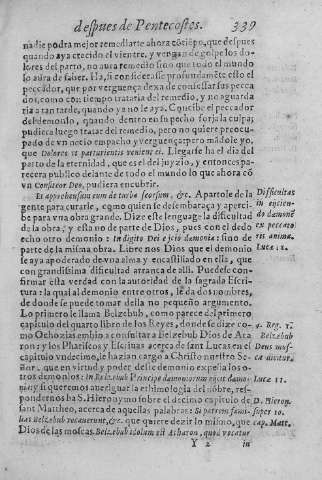 despues de Pentecostes. 339
nadie podra mejor remediarte ahora cō tiēpo, que despues
quando aya crecido el vientre, y vengan de golpe los do-
lores del parto, no aura remedio sino que todo el mundo
lo aura de saber. Ha, si considerasse profundamēte esto el
peccador, que por verguença dexa de confessar sus pecca
dos, como con tiempo trataria del remedio, y no aguarda
ria a tan tarde, quando ya no le aya. Concibe el peccador
del demonio, y quando dentro en su pecho forja la culpa,
pudiera luego tratar del remedio, pero no quiere preocu-
pado de vn necio empacho y verguença: pero mādole yo,
que Dolores vt parturientis venient ei. Llegarse ha el dia del
parto de la eternidad, que es el del juyzio, y entonces pa-
recera publico delante de todo el mundo lo que ahora cō
vn Confiteor Deo, pudiera encubrir.
Et apprehendens eum de turba seorsum, &c. Apartole de la
gente para curarle, como quien se desembaraça y aperci-
be para vna obra grande. Dize este lenguage la dificultad
de la obra; y esta no de parte de Dios, pues con el dedo
echo otro demonio: In digito Dei ejicio demonia: sino de
parte de la misma obra. Libre nos Dios que el demonio
le aya apoderado de vna alma y encastillado en ella, que
con grandissima dificultad arranca de alli. Puedese con-
firmar esta verdad con la autoridad de la sagrada Escri-
tura: la qual al demonio entre otros, le dà dos nombres,
de donde se puede tomar della no pequeño argumento.
Lo primero le llama Belzebub, como parece del primero
capitulo del quarto libro de los Reyes, donde se dize co-
mo Ochozias embio a consultar a Belzebub Dios de Aca
ron: y los Phariseos y Escriuas acerca de sant Lucas en el
capitulo vndecimo, le hazian cargo a Christo nuestro Se-
ñor, que en virtud y poder deste demonio expelia los o-
tros demonios: In Belzebub Principe dæmoniorum ejicit dæmo-
nia; y si queremos aueriguar la ethimologia del nōbre, res-
pondernos ha S. Hieronymo sobre el decimo capitulo de
sant Mattheo, acerca de aquellas palabras: Si patrem fami-
lias Belzebub vocauerunt, &c. que quiere dezir lo mismo, que
Dios de las moscas. Belzebub idolum est Acharon, quod vocatur
Y 2 in
Difficultas
in eijciendo
demone
ex peccato
ris anima.
Luca 11.
4. Reg. 1.
Belzebub
Deus mosca
dicitur.
Luca 11.
D. Hieron.
super 10.
cap. Matt.